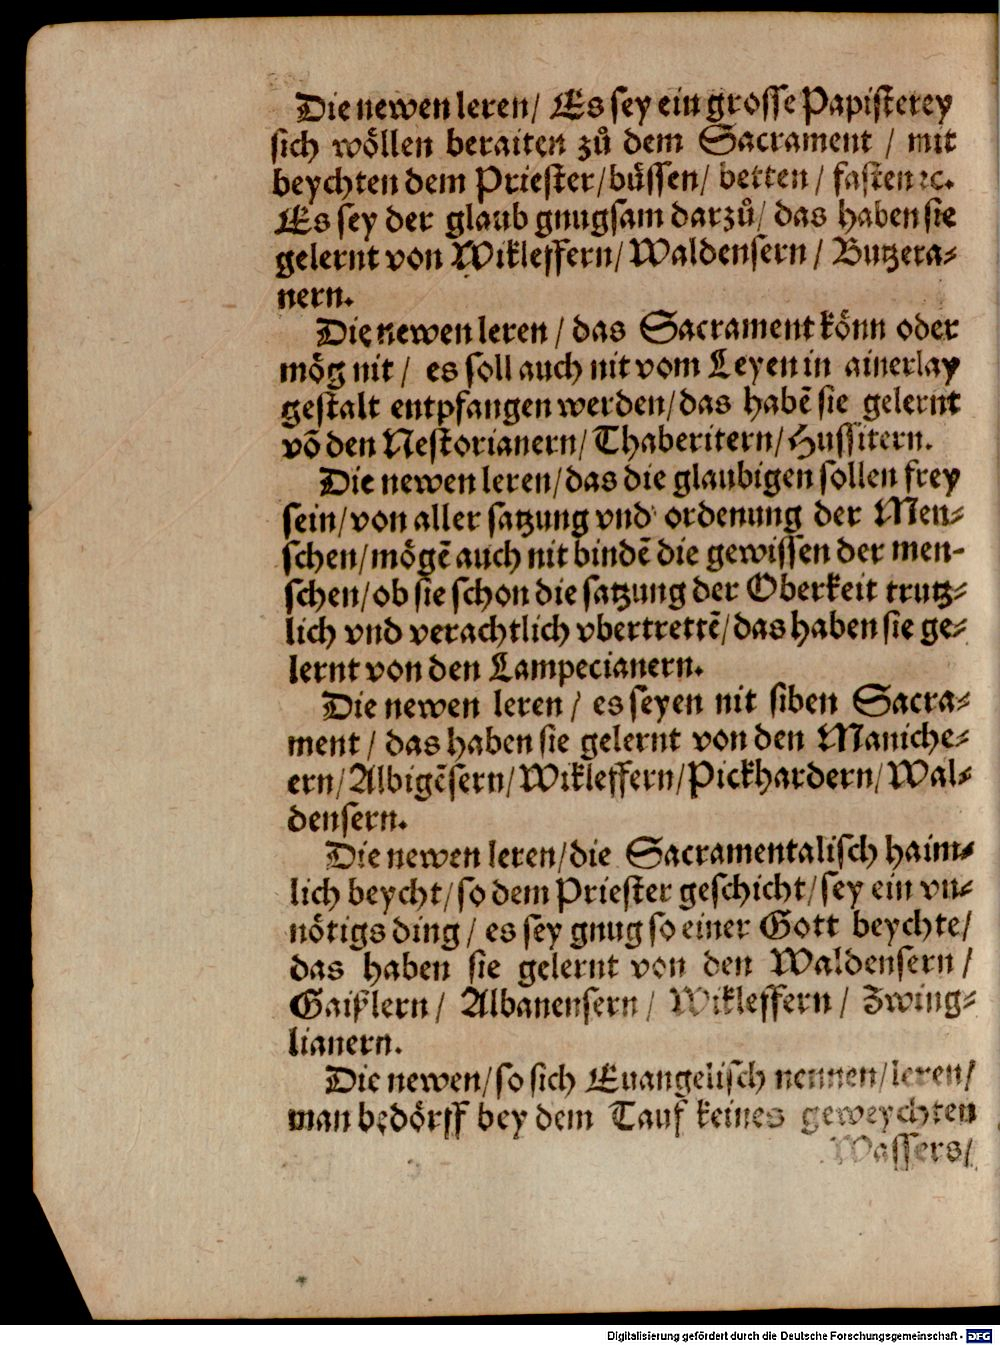 Die newen leren/ Es sey ein grosse Papisterey
sich wöllen beraiten zů dem Sacrament / mit
beychten dem Priester/büssen/ betten / fasten ꝛc.
Es sey der glaub gnugsam darzů/ das haben sie
gelernt von Wikleffern/ Waldensern / Butzera⸗
nern.
Die newen leren / das Sacrament könn oder
mög nit / es soll auch nit vom Leyen in ainerlay
gestalt entpfangen werden/das habẽ sie gelernt
võ den Nestorianern/Thaberitern/Hussitern.
Die newen leren/das die glaubigen sollen frey
sein/von aller satzung vnd ordenung der Men⸗
schen/mögẽ auch nit bindẽ die gewissen der men-
schen/ob sie schon die satzung der Oberkeit trutz⸗
lich vnd verachtlich vbertrettẽ/das haben sie ge⸗
lernt von den Lampecianern.
Die newen leren / es seyen nit siben Sacra⸗
ment / das haben sie gelernt von den Maniche⸗
ern/Albigẽsern/Wikleffern/Pickhardern/Wal⸗
densern.
Die newen leren/die Sacramentalisch haim⸗
lich beycht/so dem Priester geschicht/sey ein vn⸗
nötigs ding / es sey gnug so einer Gott beychte/
das haben sie gelernt von den Waldensern /
Gaißlern / Albanensern / Wikleffern / Zwing⸗
lianern.
Die newen/so sich Euangelisch nennen/leren/
man bedörff bey dem Tauf keines geweychten
Wassers/
Digitalisierung gefördert durch die Deutsche Forschungsgemeinschaft - DFG